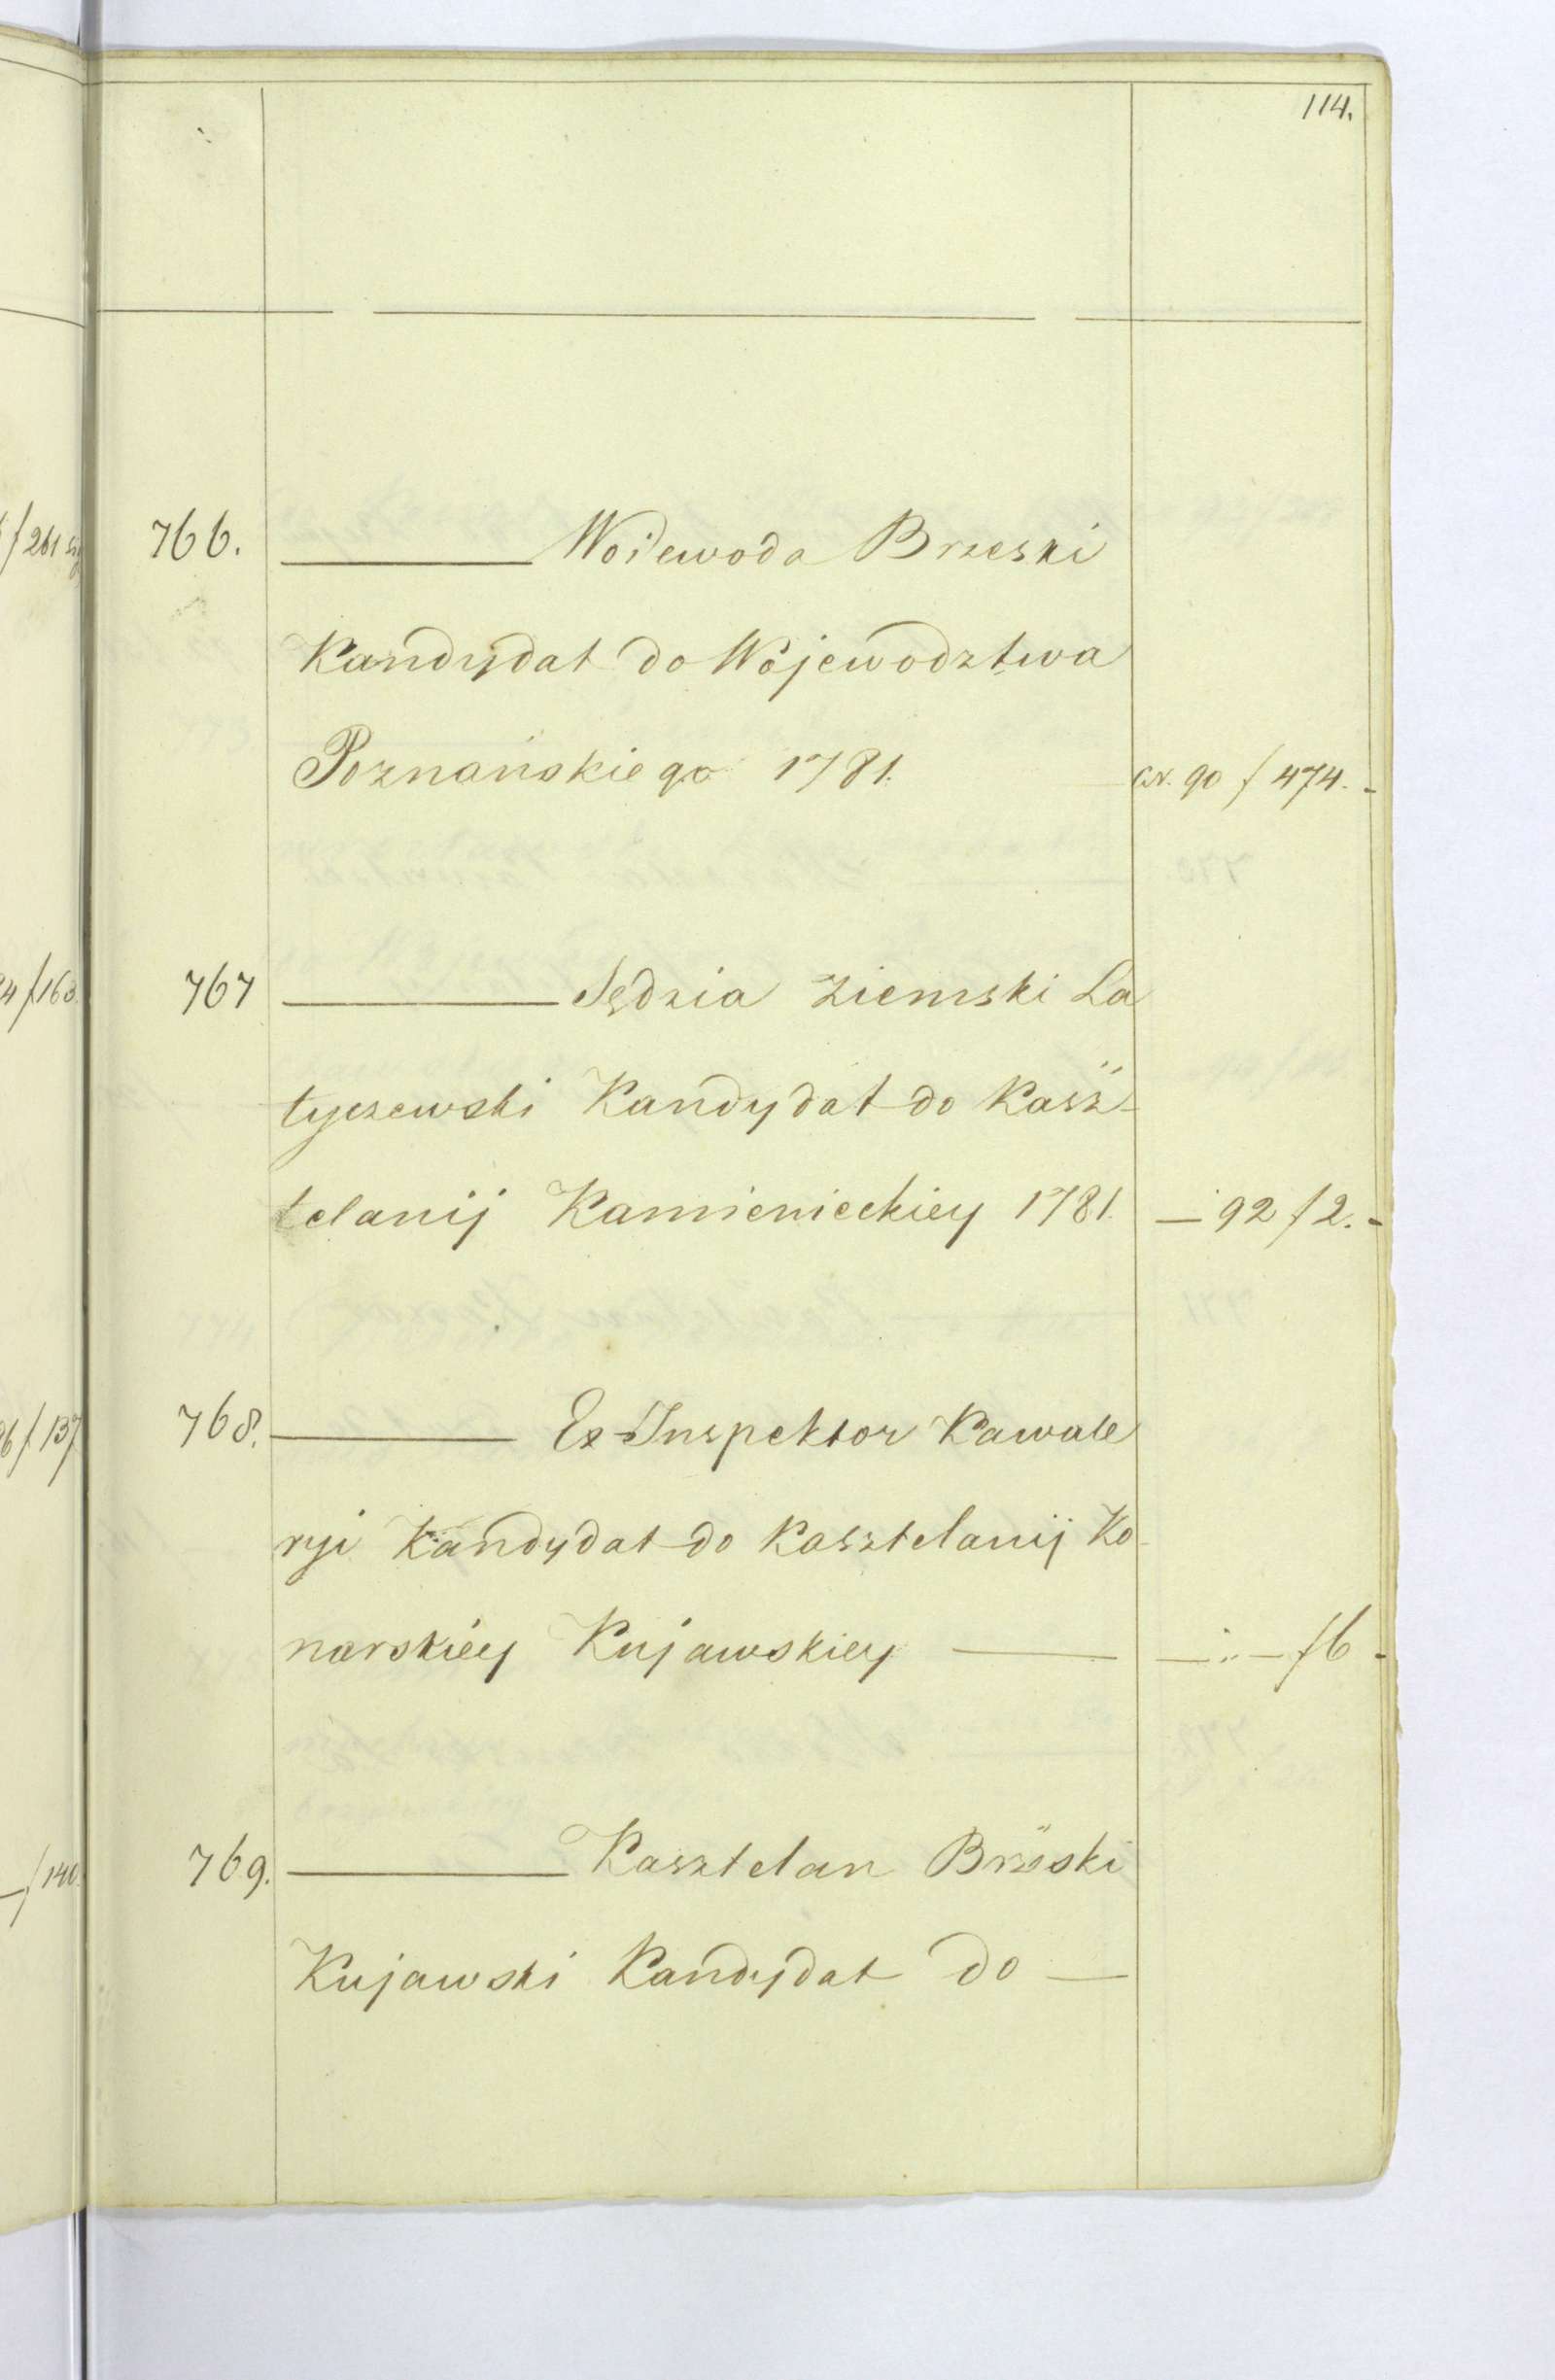 114.
766. ——— Woiewoda Brzeski
Kandydat do Wojewodztwa
Poznańskiego 1781. 90 f 474. -
767 ——— Sędzia Ziemski La
tyczewski Kandydat do Kasz-
telanij Kamienieckiey 1781. — 92 f 2. -
768. ——— Ex Inspektor Kawale
ryi Kandydat do Kasztelanij Ko-
narskiey Kujawskiey ——— — " — f 6 -
769. ——— Kasztelan Brzeski
Kujawski Kandydat do —